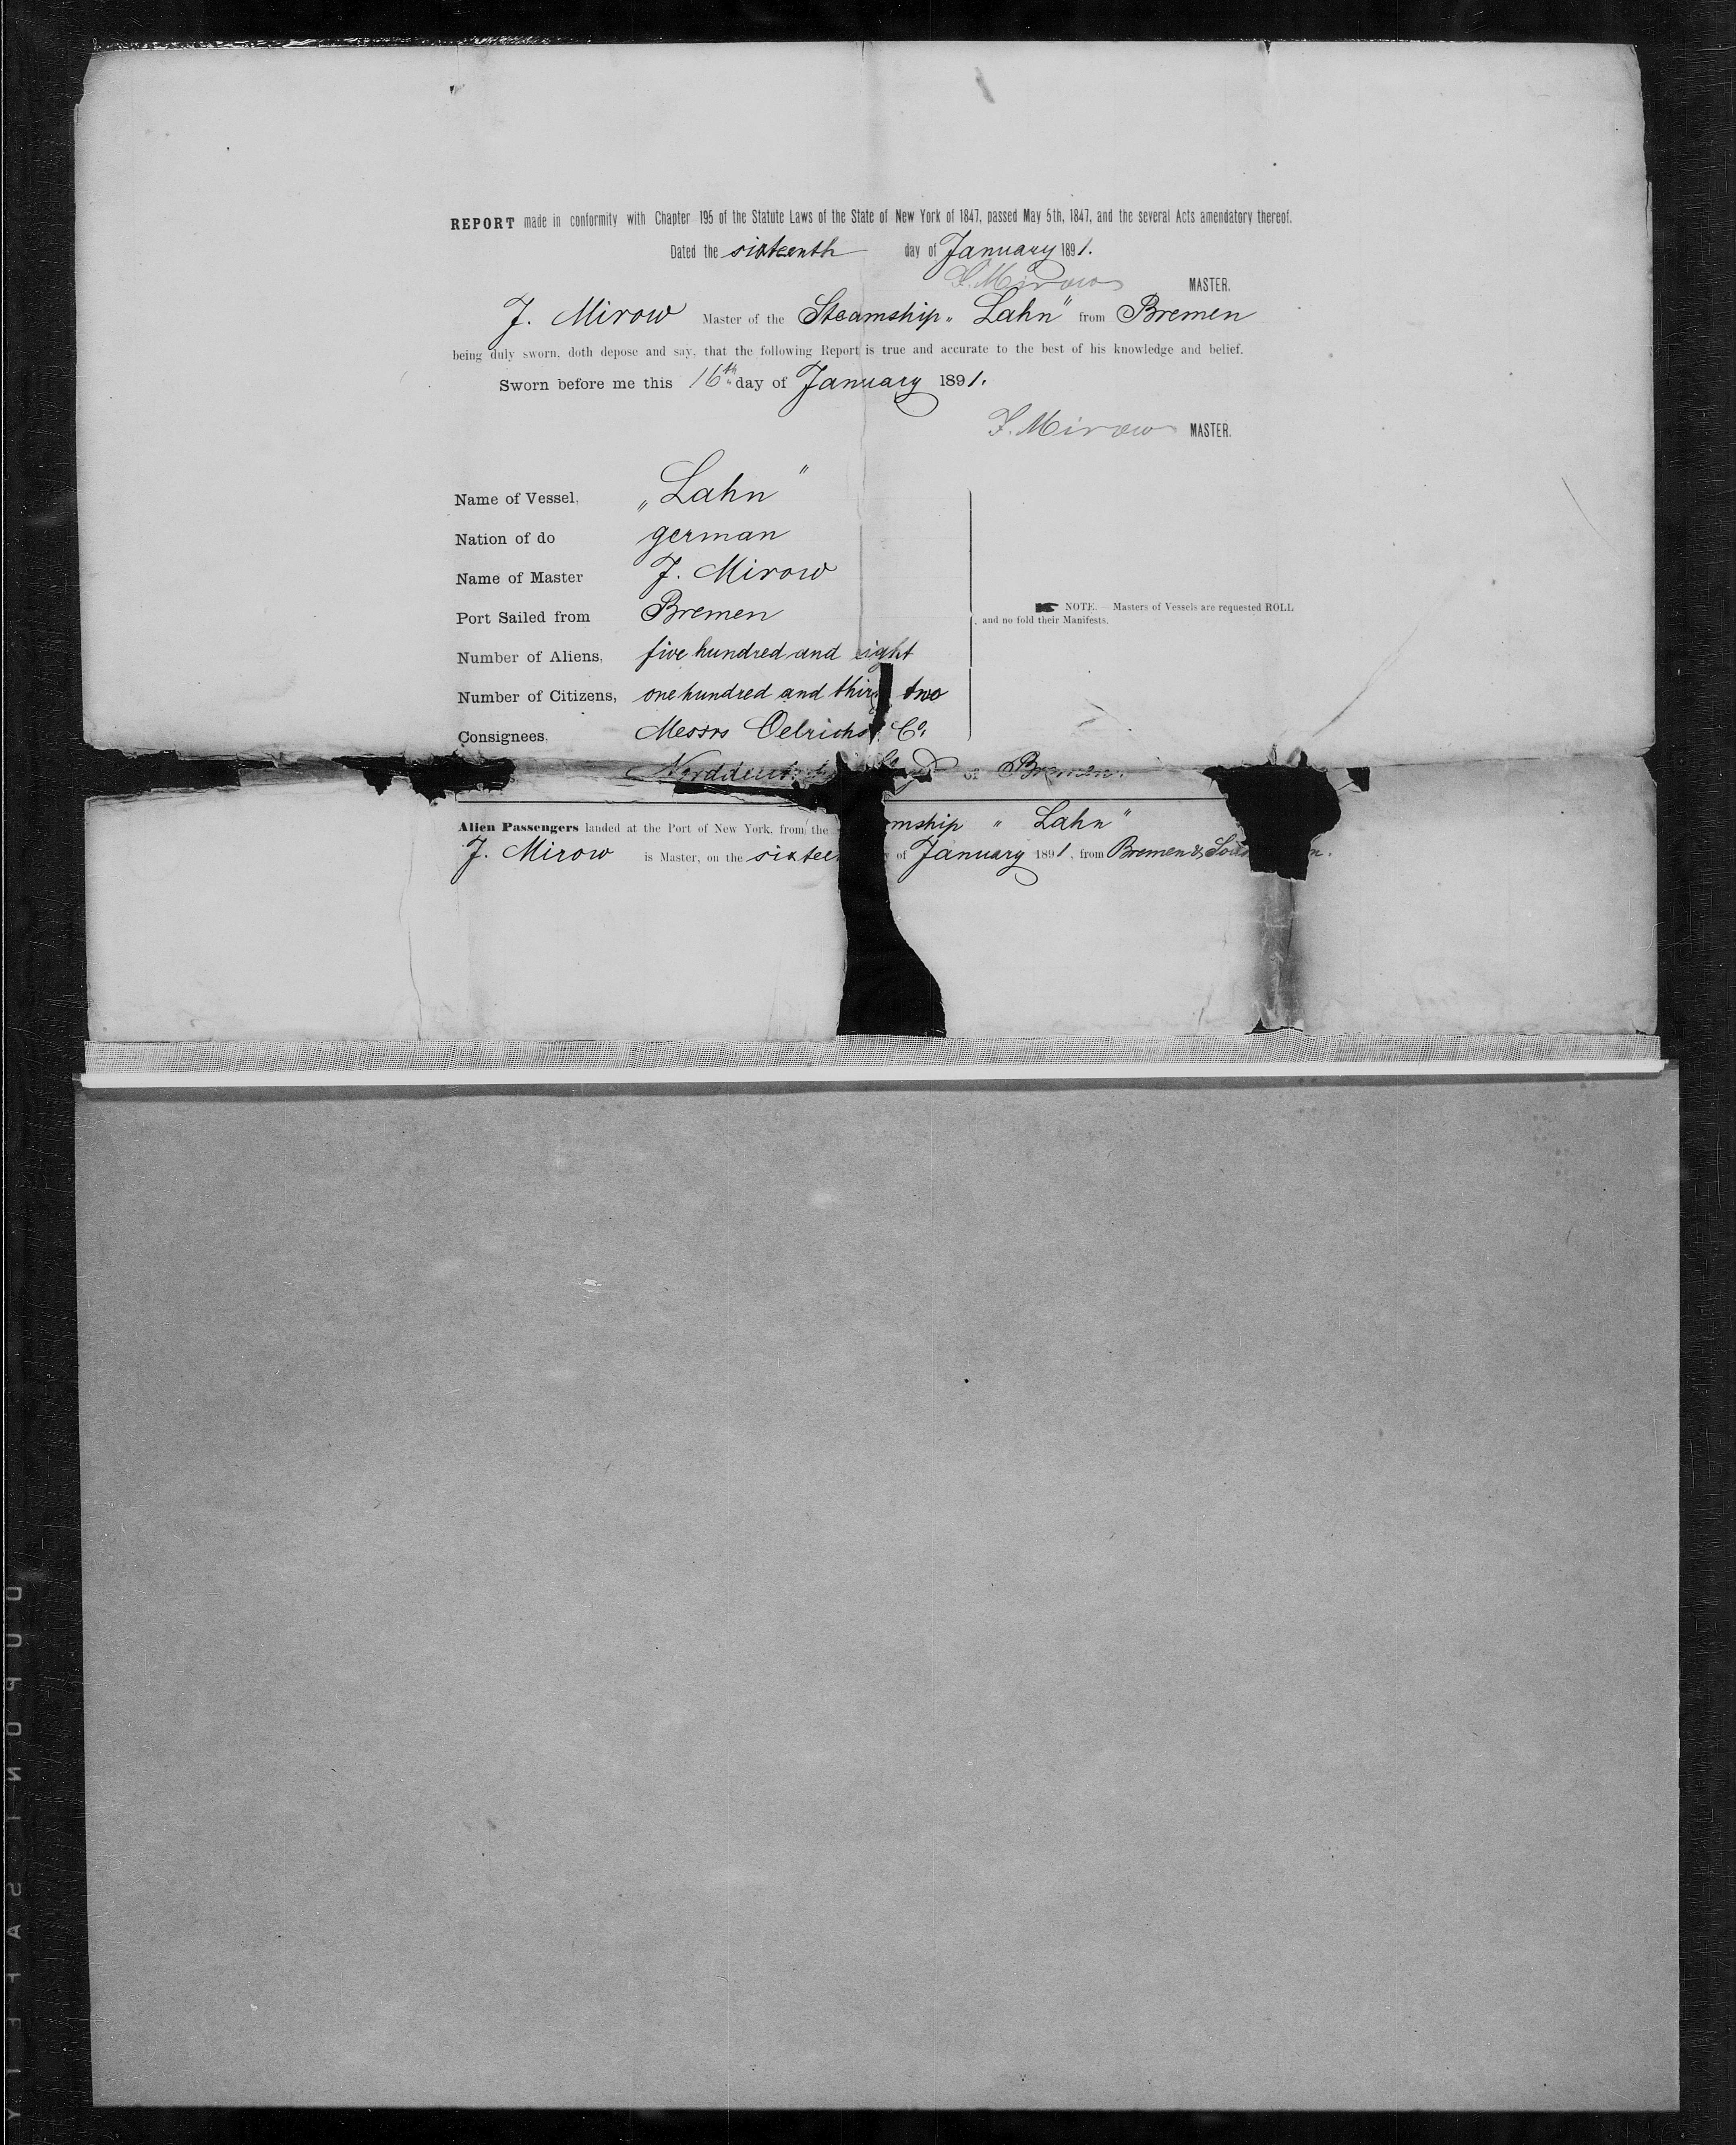 REPORT made in conformity with Chapter 195 of the Statute Laws of the State of New York of 1847, passed May 5th, 1847, and the several Acts amendatory thereof.
Dated the sixteenth day of January 1891.
F. Mirow MASTER.
J. Mirow Master of the Steamship „Lahn" from Bremen
being duly sworn, doth depose and say, that the following Report is true and accurate to the best of his knowledge and belief.
Sworn before me this 16th day of January 1891.
F. Mirow MASTER.
Name of Vessel, „Lahn"
Nation of do german
Name of Master J. Mirow
Port Sailed from Bremen
NOTE. — Masters of Vessels are requested ROLL
and no fold their Manifests.
Number of Aliens, five hundred and eight
Number of Citizens, one hundred and thir two
Consignees, Messrs Oelrichs Co.
of Bremen.
Alien Passengers landed at the Port of New York, from the mship " Lahn"
J. Mirow is Master, on the sixteen of January 1891, from Bremen & Sou n.
DUPONT SAFETY